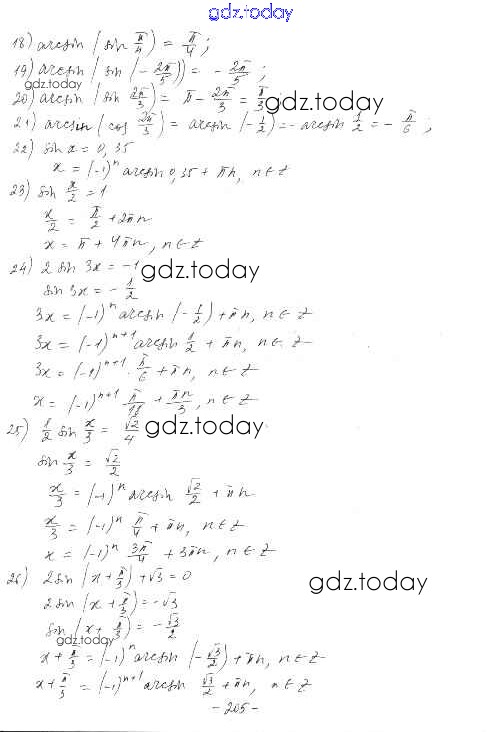 gdz.today
18) arcsin (sin π/4) = π/4 ;
19) arcsin (sin (- 2π/5)) = - 2π/5 ;
gdz.today
20) arcsin (sin 2π/3) = π - 2π/3 = π/3
gdz.today
21) arcsin (cos 2π/3) = arcsin (- 1/2) = - arcsin 1/2 = - π/6 ;
22) sin x = 0,35
x = (-1)^n arcsin 0,35 + πn, n ∈ Z
23) sin x/2 = 1
x/2 = π/2 + 2πn
x = π + 4πn, n ∈ Z
24) 2 sin 3x = -1
gdz.today
sin 3x = - 1/2
3x = (-1)^n arcsin (- 1/2) + πn, n ∈ Z
3x = (-1)^{n+1} arcsin 1/2 + πn, n ∈ Z
3x = (-1)^{n+1} · π/6 + πn, n ∈ Z
x = (-1)^{n+1} π/18 + πn/3, n ∈ Z
25) 1/2 sin x/3 = √2/4
gdz.today
sin x/3 = √2/2
x/3 = (-1)^n arcsin √2/2 + πn
x/3 = (-1)^n π/4 + πn, n ∈ Z
x = (-1)^n 3π/4 + 3πn, n ∈ Z
26) 2 sin (x + π/3) + √3 = 0
gdz.today
2 sin (x + π/3) = -√3
sin (x + π/3) = - √3/2
gdz.today
x + π/3 = (-1)^n arcsin (- √3/2) + πn, n ∈ Z
x + π/3 = (-1)^{n+1} arcsin √3/2 + πn, n ∈ Z
- 205 -